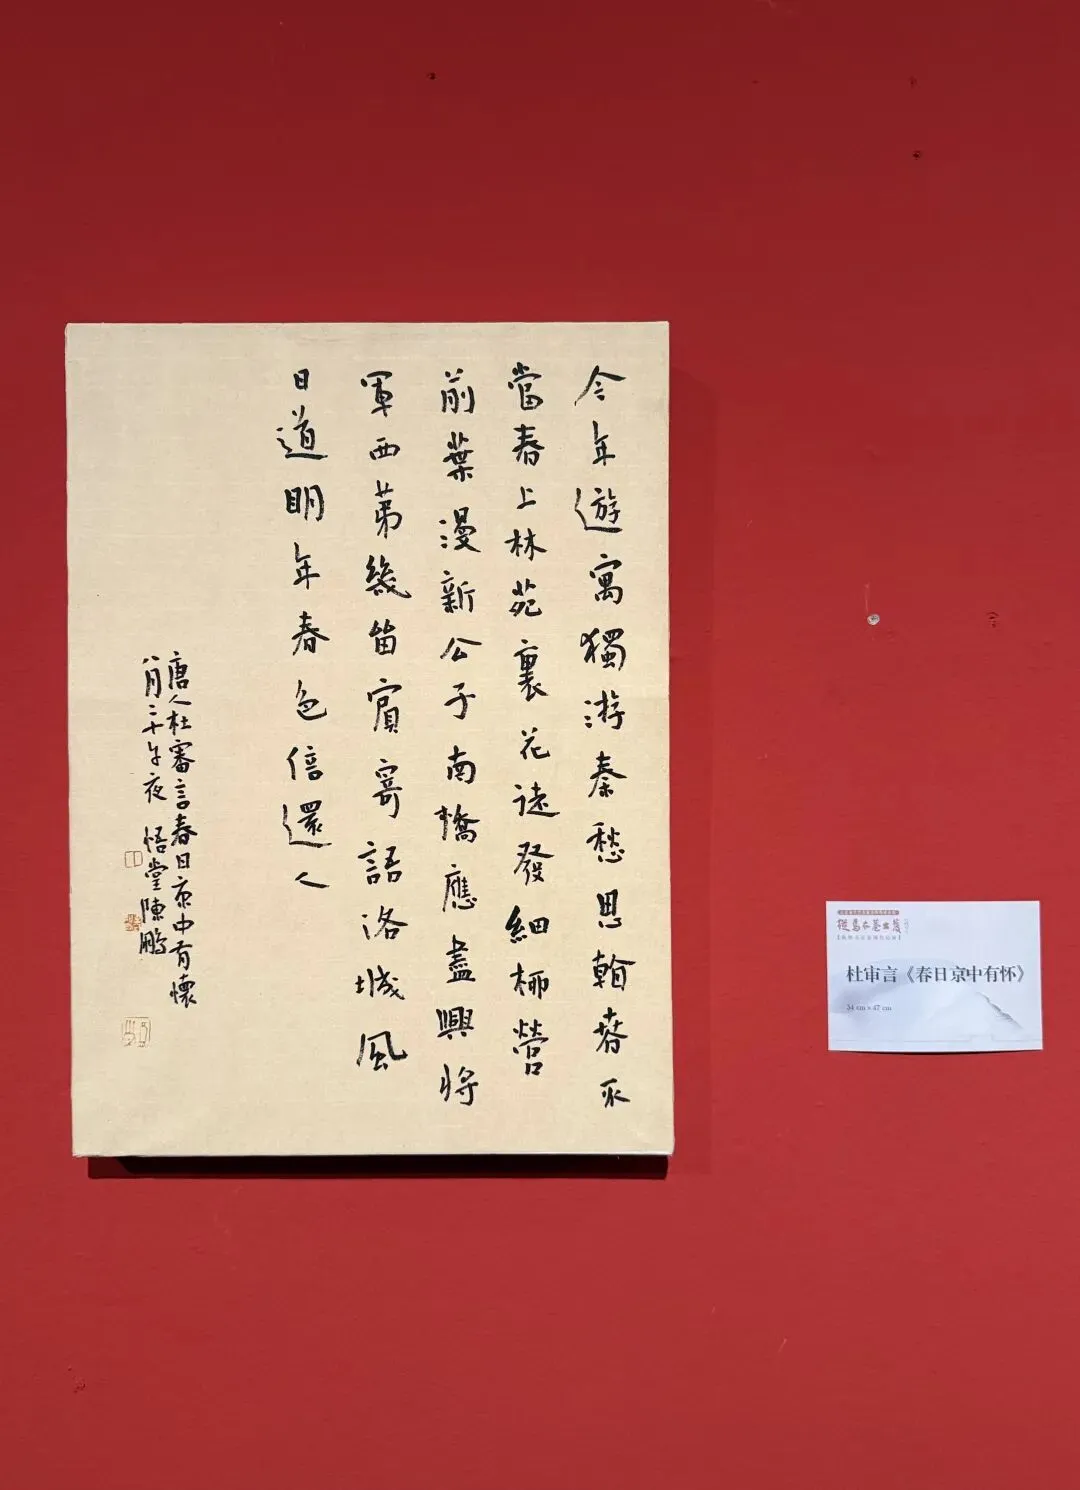 今年遊寓獨游秦愁思看春不
當春上林苑裏花遠發細柳營
前葉漫新公子南橋應盡興將
軍西第幾留賓寄語洛城風
日道明年春色倍還人
唐人杜審言春日京中有懷
八月二十午夜 悟堂陳鵬
杜审言《春日京中有怀》
34 cm × 47 cm